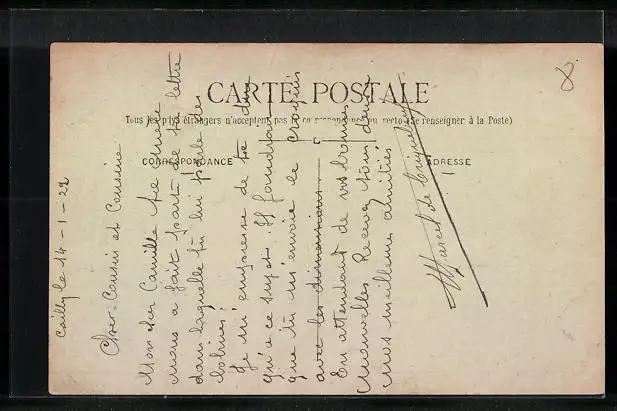 CARTE POSTALE
Tous les pays étrangers n'acceptent pas la correspondance au recto (se renseigner à la Poste)
CORRESPONDANCE
ADRESSE
Cailly le 14-1-22
Cher Cousin et Cousine
Mon cher Camille ta chère
mans a fait part de ta lettre
dans laquelle tu lui parle de
Je m'empresse de te dire
qu'à ce sujet. Il faudrait
que tu m'envoie le croquis
avec les dimensions
En attendant de vos bonnes
Nouvelles Recevez tous deux
mes meilleures amitiés
Marcel de